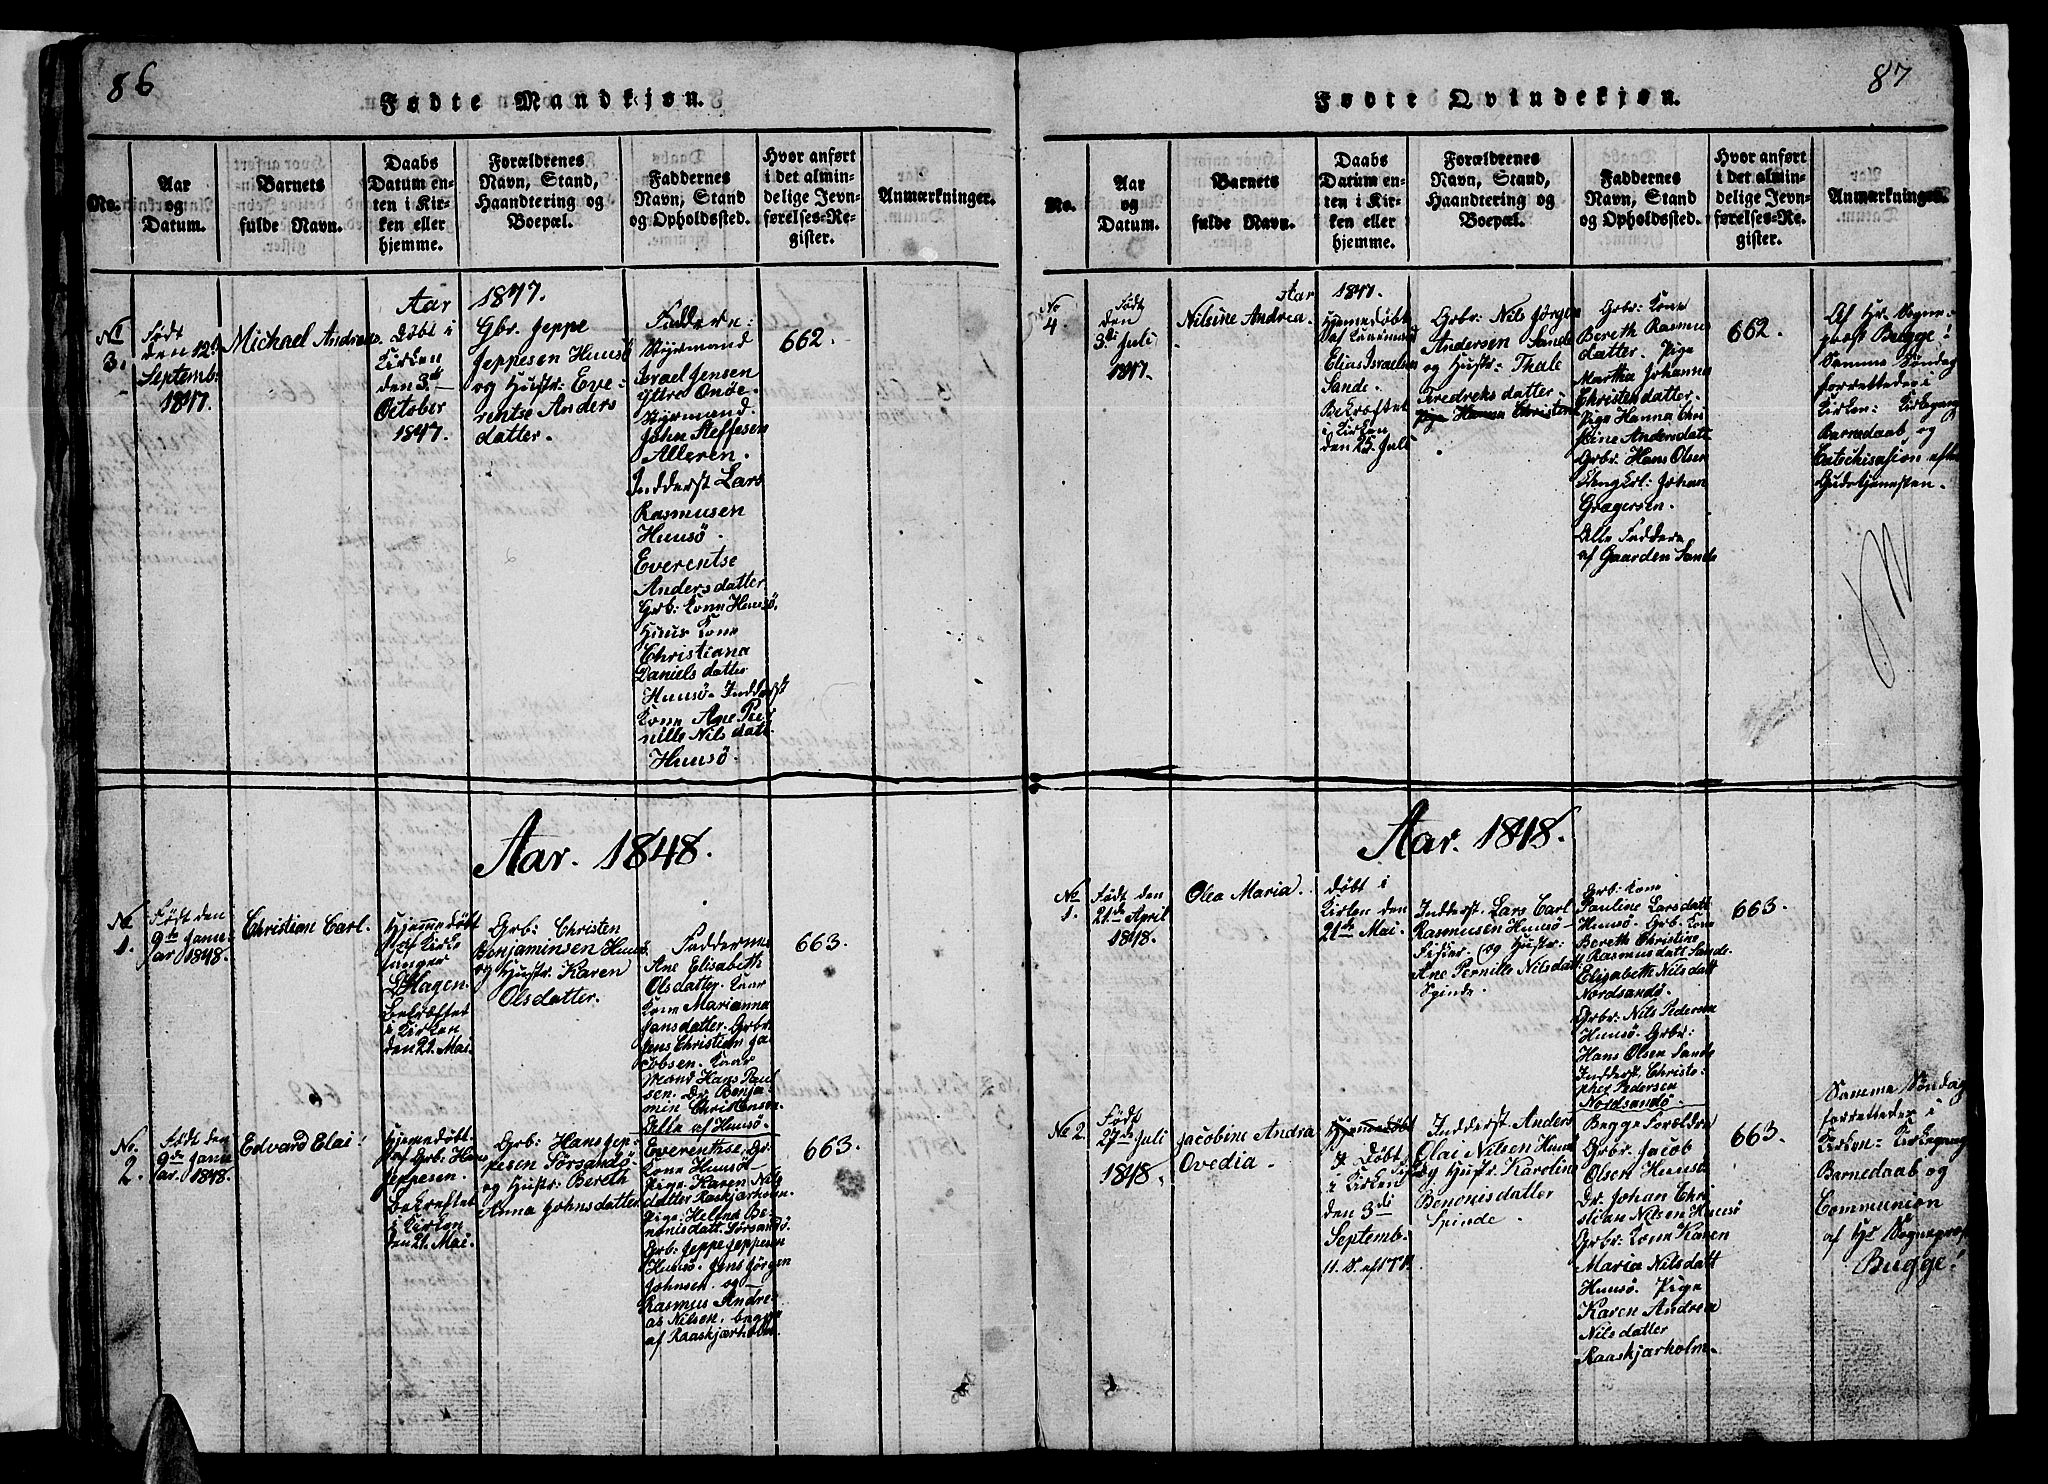 86
Fødte Mandkjøn.
No.
Aar
og
Datum.
Barnets
fulde Navn.
Daabs
Datum en-
ten i Kir-
ken eller
hjemme.
Forældrenes
Navn, Stand,
Haandtering og
Boepæl.
Faddernes
Navn, Stand
og Opholdssted.
Hvor anført
i det almin-
delige Jevn-
førelses-Re-
gister.
Anmærkninger.
Aar 1847.
No
3.
Født
den 12te
Septembr
1847.
Michael Andreas
Døbt i
Kirken
den 3die
October
1847.
Gbr. Jeppe
Jeppesen Huusö
og Hustr: Eve-
rentse Anders
datter.
Faddere:
Styrmand
Israel Jensen
Yttre Onöe.
Styrmand
John Steffesen
Alleren.
Inderst Lars
Rasmusen
Huusö.
Everentse
Andersdatter
Grb: Kone Huusö.
Huus Kone
Christiana
Daniels datter
Huusö. Inderst
Kone Ane Per
nille Nils datt.
Huusö.
662.
Aar. 1848.
No
1.
Født den
9de Janu-
ar 1848.
Christian Carl.
Hjemmedøbt
af Kirke
sanger
D. Hagen.
Bekræftet
i Kirken
den 21. Mai.
Grb: Christen
Benjaminsen Huusö
og Hustr. Karen
Olsdatter.
Faddernes
Ane Elisabeth
Olsdatter. Kaar
Kone Marianna
Jansdatter. Grbr.
Jens Christian Ja-
cobsen. Kaar
Mand Hans Paul
sen. Dr. Benja-
min Christensen.
Alle af Huusö.
663.
No.
2.
Født den
9de Janu-
ar. 1848.
Edvard Elai.
Hjemedøbt
af Grb: Hans
Jeppesen.
Bekræftet
i Kirken
den 21. Mai.
Grb: Hans Jep-
pesen Sörsandö
og Hustr: Bereth
Anna Johnsdatter
Everenthse. Gr.
Kone Huusö
Pige: Karen Nils
datter Raaskjærholm.
Pige: Helena Be-
nonisdatt Sörsandö
Grb: Jeppe Jeppesen
Huusö. Jens Jörgen
Johnsen og
Rasmus Andre-
as Nilsen, begge
af Raaskjærholm.
663.
87
Fødte Qvindekjøn.
No.
Aar
og
Datum.
Barnets
fulde Navn.
Daabs
Datum en-
ten i Kir-
ken eller
hjemme.
Forældrenes
Navn, Stand,
Haandtering og
Boepæl.
Faddernes
Navn, Stand
og Opholdssted.
Hvor anført
i det almin-
delige Jevn-
førelses-Re-
gister.
Anmærkninger.
Aar 1847.
No
4.
Født
den
3die Juli
1847.
Nilsine Andrea.
Hjemedøbt
af
Elias Israelsen
Sande.
Bekræftet
i Kirken
den 25. Juli
Grbr: Nils Jörgen
Andersen Sande
og Hustr: Thale
Fredreks datter.
Pige Hanna Christine
Grbr: Kone
Bereth Rasmus
datter. Pige
Martha Johanna
Christendatter.
Pige Hanna Chri
stine Andersdatt
Grbr: Hans Olsen
Ungkrl: Johan
Gregersen.
Alle Faddere
af Gaarden Sande
662.
Af Hr. Sogne-
præst Bugge!
Samme Söndag
forrettedes i
Kirken: Kirkegang
Barnedaab og
Catechisasion efter
Gudstjenesten.
Aar. 1848.
No
1.
Født den
21de April
1848.
Olea Maria.
Døbt i
Kirken den
21de Mai.
Inderst. Lars Carl
Rasmusen Huusö
Fisker. og Hustr:
Ane Pernille Nilsdatt.
Spinde.
Grb: Kone
Pauline Larsdatt
Huusö. Grb. Kone
Bereth Christine
Rasmusdatt Sande.
Elisabeth Nilsdatt
Nordsandö.
Grbr. Nils Pedersen
Huusö. Grbr:
Hans Olsen Sande
Inderst. Christo-
pher Pedersen
Nordsandö.
663.
No 2.
Født
27de Juli
1848.
Jacobine Andra
Ovedia.
Hjemmedøbt
Døbt
i Kirken
den 3di
Septemb.
11. S. eft. Tr.
Inderst Anders
Olai Nilsen Huusö
og Hustr. Karolina
Benonisdatter
Spinde.
Begge Foreldre
Grbr. Jacob
Olsen Huusö
Dr. Johan Chri
stian Nilsen Huusö
Grbr: Kone Karen
Maria Nilsdatt
Huusö. Pige
Karen Andrea
Nilsdatter
Raaskjærholm.
663.
Samme Söndag
forrettedes i
Kirken: Kirkegang
Barnedaab og
Communion
af Hr Sognepræst
Bugge!